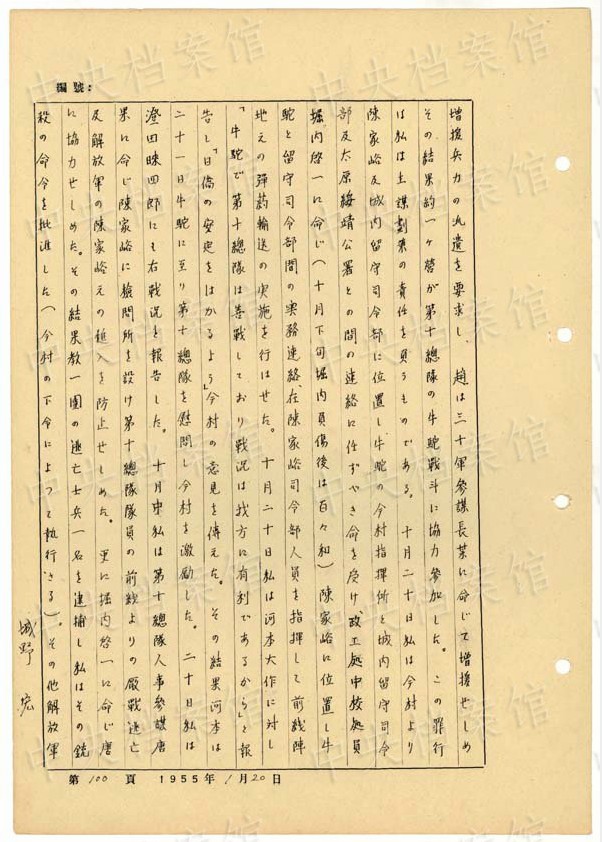 編號:
增援兵力の派遣を要求し、趙は三十軍參謀長葉に命じて増援せしめ
その結果約一ヶ營が第十總隊の牛駝戰斗に協力参加した。この罪行
は私は主謀劃策の責任を負うものである。 十月二十日私は今村より
陳家峪及城内留守司令部に位置し牛駝の今村指揮所と城内留守司令
部及太原綏靖公署との間の連絡に任ずべき命を受け、政工処中校処員
堀内啓一に命じ(十月下旬堀内負傷後は百々和)陳家峪に位置し牛
駝と留守司令部間の実務連絡、在陳家峪司令部人員を指揮して前线陣
地えの弾葯輸送の実施を行はせた。 十月二十日私は河本大作に対し
「牛駝で第十總隊は善戰しており戰況は我方に有利であるから」と報
告し「日僑の安定をはかるよう」今村の意見を傳えた。 その結果河本は
二十一日牛駝に互り第十總隊を慰問し今村を激励した。 二十日私は
澄田𧶛四郎にも右戰況を報告した。 十月中私は第十總隊人事參謀唐
果に命じ陳家峪に檢問所を設け第十總隊隊員の前线よりの厭戰逃亡
及解放軍の陳家峪えの進入を防止せしめた。 更に堀内啓一に命じ唐
に協力せしめた。その結果教一團の逃亡士兵一名を逮捕し私はその銃
殺の命令を批准した(今村の下令によって執行さる)。 その他解放軍
城野 宏
第 100 頁 1955年 1月20日
中央档案馆